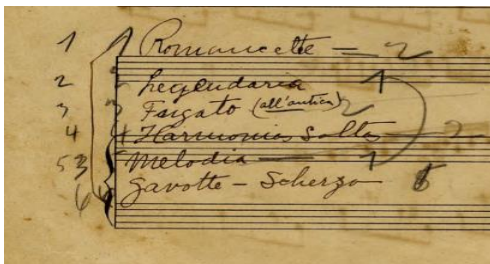 1 Romancette — 2
2 Legendaria
3 Fugato (all'antica) 2
4 Harmonias Soltas 2
5 3 Melodia
6 4 Gavotte - Scherzo